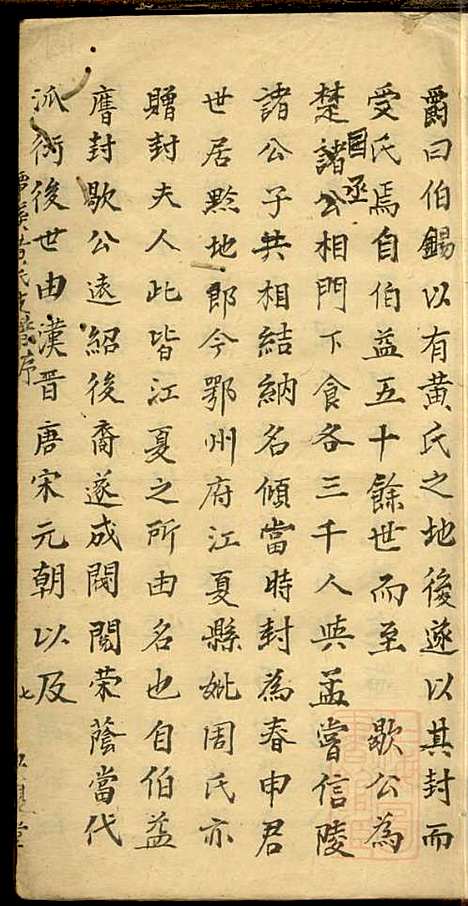 爵曰伯錫以有黃氏之地後遂以其封而
受氏焉自伯益五十餘世而至歇公為
楚諸公相門下食各三千人與孟嘗信陵
國丞
諸公子共相結納名傾當時封為春申君
世居黔地郎今鄂州府江夏縣妣周氏亦
贈封夫人此皆江夏之所由名也自伯益
膺封歇公遠紹後裔遂成閥閱荣蔭當代
派衍後世由漢晉唐宋元朝以及
黃氏支譜序
七
堂